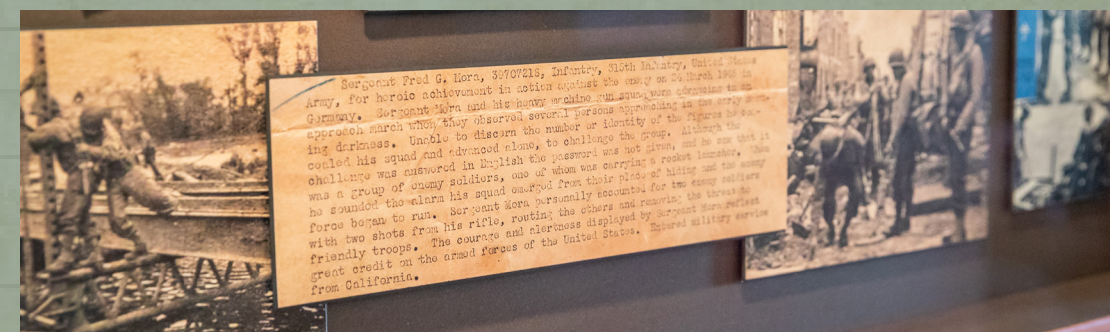 Sergeant Fred G. Mora, 39707218, Infantry, 310th Infantry, United States
Army, for heroic achievement in action against the enemy on 24 March 1945 in
Germany. Sergeant Mora and his heavy machine gun squad were advancing in an
approach march when they observed several persons approaching in the early morn-
ing darkness. Unable to discern the number or identity of the figures he con-
cealed his squad and advanced alone, to challenge the group. Although the
challenge was answered in English the password was not given, and he saw that it
was a group of enemy soldiers, one of whom was carrying a rocket launcher. When
he sounded the alarm his squad emerged from their place of hiding and the enemy
force began to run. Sergeant Mora personally accounted for two enemy soldiers
with two shots from his rifle, routing the others and removing the threat to
friendly troops. The courage and alertness displayed by Sergeant Mora reflect
great credit on the armed forces of the United States. Entered military service
from California.